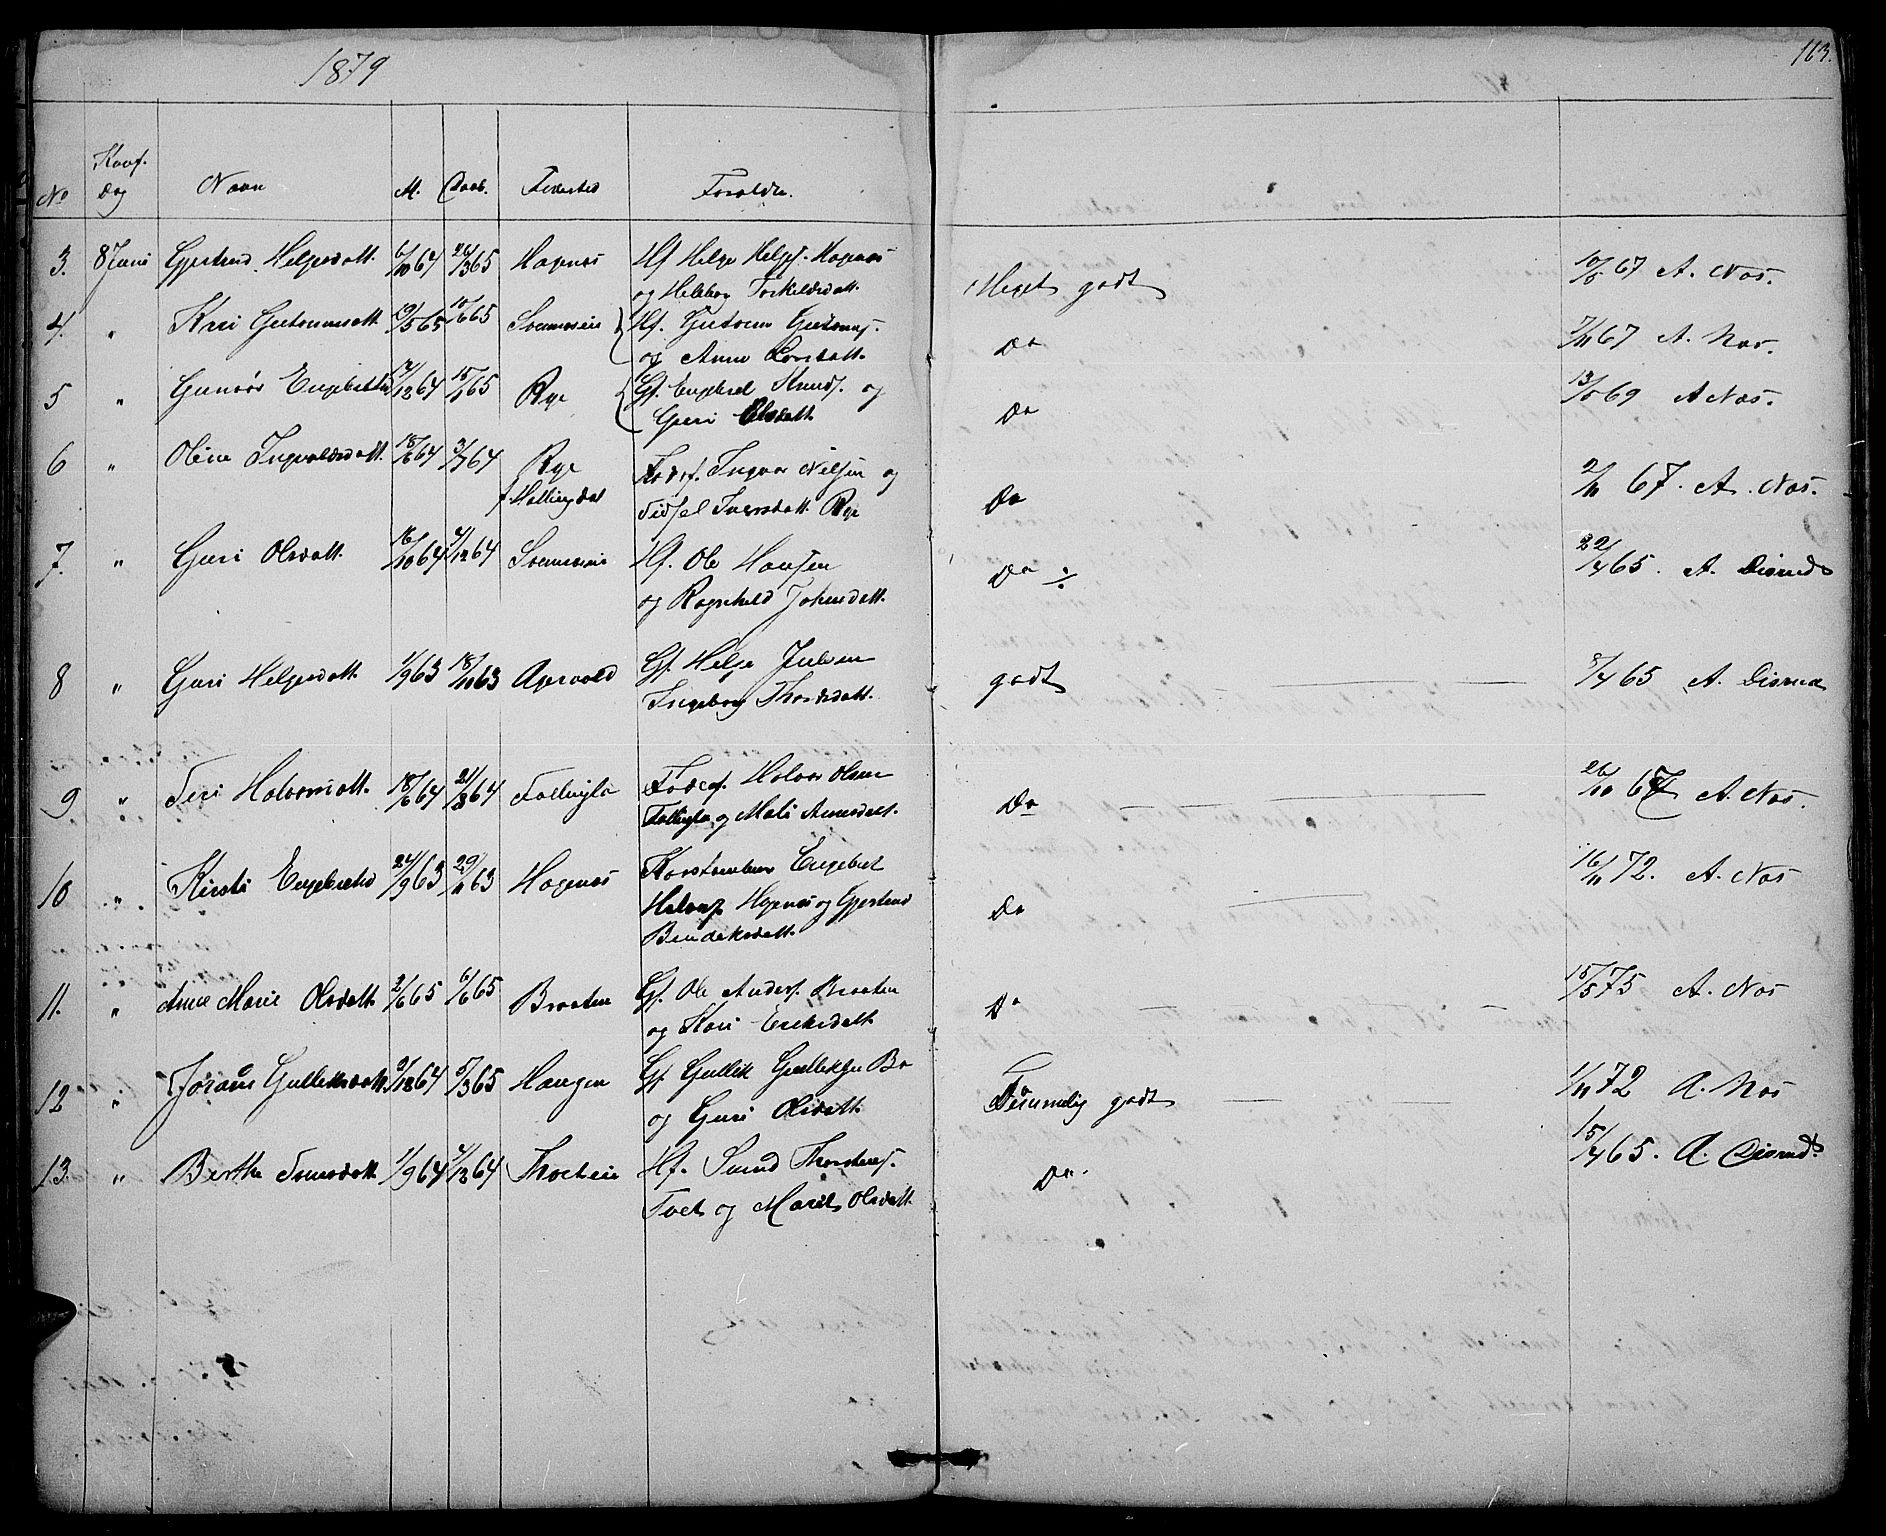 1879
163.
No Konf. dag Navn M. Daab. Fødested Forældre.
3. 8 Juni Gjertrud Helgesdatt. 6/10 64 26/3 65 Hagenæs Hf Helge Helgs. Hagenæs
og Helebog Torkildsdatt. Meget godt 10/5 67 A. Næs.
4. " Kari Guttormsdatt 19/5 65 10/6 65 Hf. Guttorm Guttorms.
og Anne Larsdatt. Do 7/11 67 A. Næs.
5 " Gunvor Engebretsd 17/12 64 15/1 65 Rye Gf. Engebret Knuds. og
Guri Olsdatt. Do 13/5 69 A Næs.
6 " Oline Ingvaldsdatt. 18/6 64 3/7 64 Rye
Hallingdal Ingvar Nilsen og
Sidsel Iversdatt. Rye Do 2/11 67. A. Næs.
7. " Guri Olsdatt. 16/10 64 4/12 64 Hf. Ole Hansen
og Ragnhild Johnsdatt. Do ÷ 22/4 65. A. Disrud
8 " Guri Helgesdatt. 1/9 63 18/10 63 Agervold Gf. Helge Julsen
Ingeborg Thordsdatt. godt 8/4 65 A. Disrud
9 " Siri Halvorsdatt. 18/6 64 21/8 64 Follingla Halvor Olsen
Follingla og Mali Arnesdatt. Do 26/10 67 A. Næs.
10 " Kirsti Engebretsd 24/9 63 29/11 63 Hagenæs Engebret
Halvors. Hagenæs og Gjertrud
Bendeksdatt. Do 16/11 72. A. Næs
11. " Anne Marie Olsdatt. 2/6 65 6/6 65 Braaten Gf. Ole Anders. Braaten
og Kari Eriksdatt. Do 15/5 75 A. Næs
12 " Jøran Gulleksdatt. 9/12 64 5/3 65 Haugen Gf. Gullik Gulleksen Bo
og Guri Olsdatt. Temmelig godt 1/11 72 A. Næs
13. " Berthe 1/9 64 4/12 64 Hf. Thorstens.
Tvet og Marit Olsdatt. Do. 15/4 65. A. Disrud.